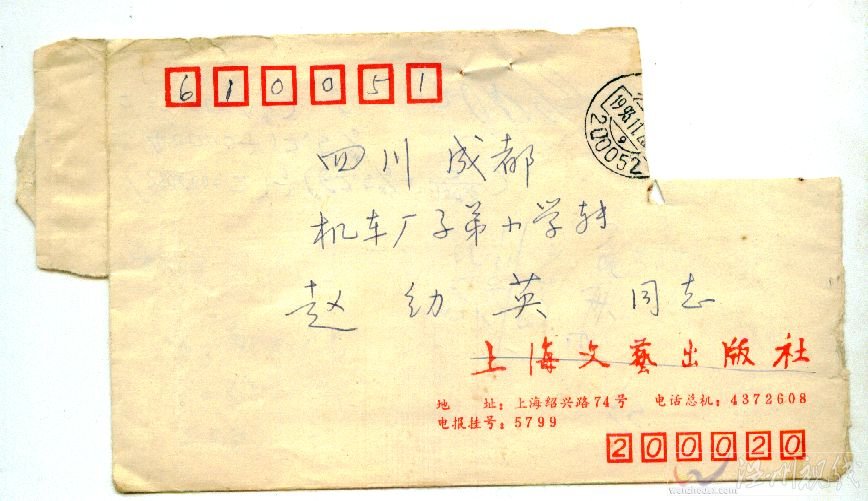 610051
1993.11
9
200052
四川 成都
机车厂子第小学转
赵幼英 同志
上海文艺出版社
地 址：上海绍兴路74号 电话总机：4372608
电报挂号：5799
200020